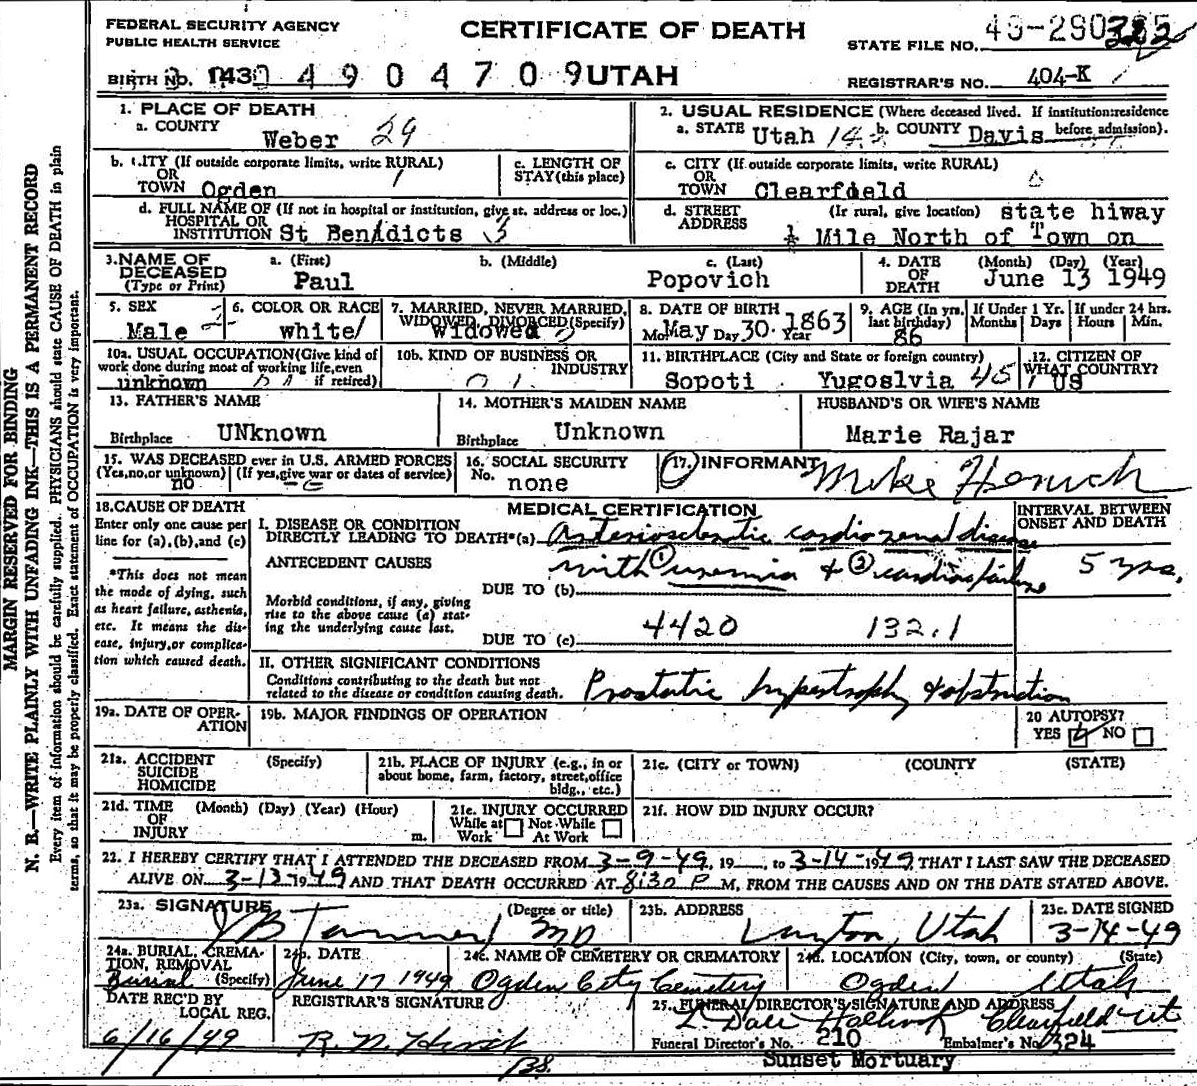 FEDERAL SECURITY AGENCY
PUBLIC HEALTH SERVICE
CERTIFICATE OF DEATH
STATE FILE NO.
BIRTH NO. 1430 490 4709 UTAH
REGISTRAR'S NO. 404-K
1. PLACE OF DEATH
a. COUNTY Weber 29
2. USUAL RESIDENCE (Where deceased lived. If institution:residence before admission).
a. STATE Utah b. COUNTY Davis
b. CITY (If outside corporate limits, write RURAL) OR TOWN Ogden
c. LENGTH OF STAY (this place)
c. CITY (If outside corporate limits, write RURAL) OR TOWN Clearfield
d. FULL NAME OF (If not in hospital or institution, give st. address or loc.) HOSPITAL OR INSTITUTION St Benidicts
d. STREET ADDRESS (Ir rural, give location) state hiway
Mile North of Town on
3. NAME OF DECEASED (Type or Print)
a. (First) Paul
b. (Middle)
c. (Last) Popovich
4. DATE OF DEATH (Month) (Day) (Year) June 13 1949
5. SEX Male
6. COLOR OR RACE white
7. MARRIED, NEVER MARRIED, WIDOWED, DIVORCED (Specify) widowed
8. DATE OF BIRTH Mo. May Day 30. Year 1863
9. AGE (In yrs. last birthday) 86
If Under 1 Yr. Months Days
If under 24 hrs. Hours Min.
10a. USUAL OCCUPATION (Give kind of work done during most of working life, even if retired) unknown
10b. KIND OF BUSINESS OR INDUSTRY
11. BIRTHPLACE (City and State or foreign country) Sopoti Yugoslvia 45
12. CITIZEN OF WHAT COUNTRY? US
13. FATHER'S NAME
Birthplace UNknown
14. MOTHER'S MAIDEN NAME
Birthplace Unknown
HUSBAND'S OR WIFE'S NAME
Marie Rajar
15. WAS DECEASED ever in U.S. ARMED FORCES (Yes, no, or unknown) (If yes, give war or dates of service) no
16. SOCIAL SECURITY No. none
17. INFORMANT Mike
18. CAUSE OF DEATH
Enter only one cause per line for (a), (b), and (c)
MEDICAL CERTIFICATION
INTERVAL BETWEEN ONSET AND DEATH
I. DISEASE OR CONDITION DIRECTLY LEADING TO DEATH*(a) Arteriosclerotic cardiorenal disease
with ① uremia & ② cardiac failure 5 yrs.
*This does not mean the mode of dying, such as heart failure, asthenia, etc. It means the disease, injury, or complication which caused death.
ANTECEDENT CAUSES
DUE TO (b)
Morbid conditions, if any, giving rise to the above cause (a) stating the underlying cause last.
DUE TO (c)
4420 132.1
II. OTHER SIGNIFICANT CONDITIONS
Conditions contributing to the death but not related to the disease or condition causing death. Prostatic hypertrophy & obstruction
19a. DATE OF OPERATION
19b. MAJOR FINDINGS OF OPERATION
20 AUTOPSY? YES NO
21a. ACCIDENT SUICIDE HOMICIDE (Specify)
21b. PLACE OF INJURY (e.g., in or about home, farm, factory, street, office bldg., etc.)
21c. (CITY or TOWN) (COUNTY) (STATE)
21d. TIME OF INJURY (Month) (Day) (Year) (Hour) m.
21e. INJURY OCCURRED While at Work Not While At Work
21f. HOW DID INJURY OCCUR?
22. I HEREBY CERTIFY THAT I ATTENDED THE DECEASED FROM 3-9-49, 19 , to 3-14-1949 THAT I LAST SAW THE DECEASED
ALIVE ON 3-13-1949 AND THAT DEATH OCCURRED AT 8:30 P M, FROM THE CAUSES AND ON THE DATE STATED ABOVE.
23a. SIGNATURE (Degree or title) JB Tanner MD
23b. ADDRESS Layton, Utah
23c. DATE SIGNED 3-14-49
24a. BURIAL, CREMATION, REMOVAL (Specify) Burial
24b. DATE June 17 1949
24c. NAME OF CEMETERY OR CREMATORY Ogden City Cemetery
24d. LOCATION (City, town, or county) (State) Ogden Utah
DATE REC'D BY LOCAL REG. 6/16/49
REGISTRAR'S SIGNATURE
25. FUNERAL DIRECTOR'S SIGNATURE AND ADDRESS L. Dale Holbrook Clearfield Ut
Funeral Director's No. 210 Embalmer's No. 324
Sunset Mortuary
MARGIN RESERVED FOR BINDING
N. B.—WRITE PLAINLY WITH UNFADING INK—THIS IS A PERMANENT RECORD
Every item of information should be carefully supplied. PHYSICIANS should state CAUSE OF DEATH in plain
terms, so that it may be properly classified. Exact statement of OCCUPATION is very important.